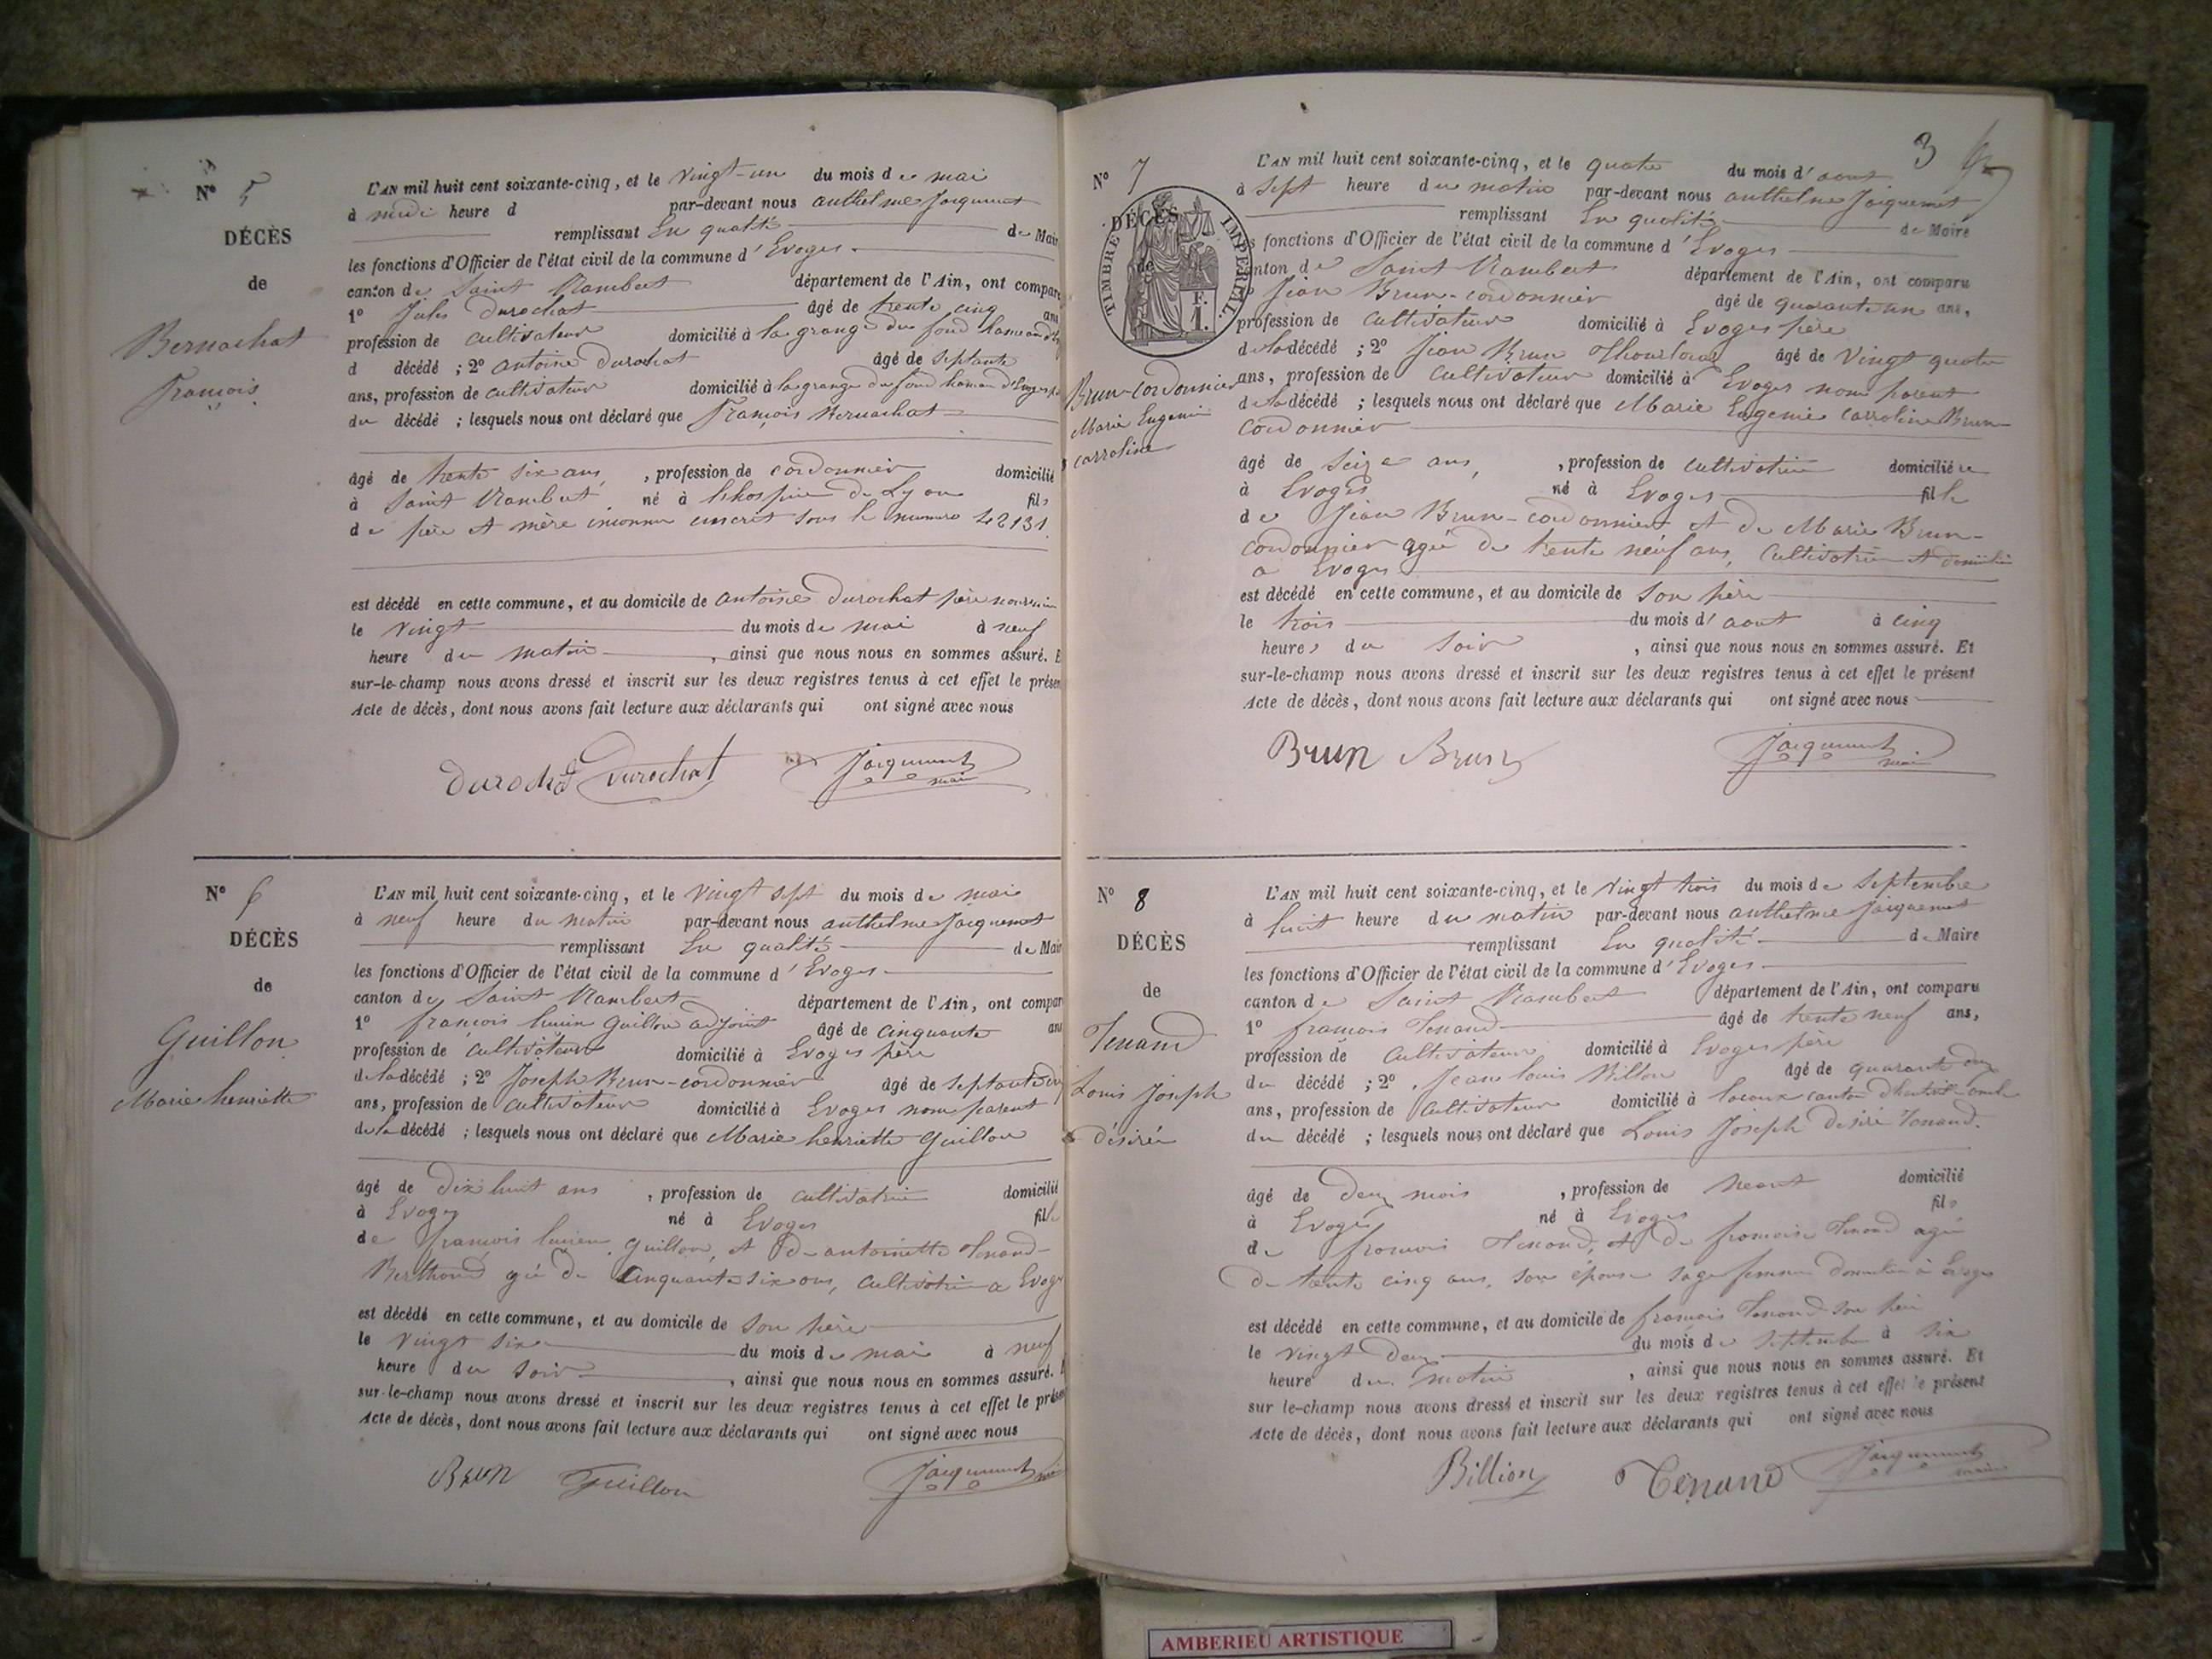 N° 5
DÉCÈS
de
Bernachat
François
L'AN mil huit cent soixante-cinq, et le vingt-un du mois de mai
à midi heure d par-devant nous anthelme Jacquemet
remplissant En qualité de Mair
les fonctions d'Officier de l'état civil de la commune d'Evoges
canton de Saint Rambert département de l'Ain, ont compar
1° Jules Durochat âgé de trente cinq ans
profession de cultivateur domicilié à la grange du fond hameau
d décédé ; 2° antoine Durochat âgé de septante
ans, profession de cultivateur domicilié à la grange du fond hameau d'Evoges
du décédé ; lesquels nous ont déclaré que François Bernachat
âgé de trente six ans, profession de cordonnier domicilié
à Saint Rambert né à lhospice de Lyon fils
de père et mère inconnu inscrit sous le numero 42131.
est décédé en cette commune, et au domicile de antoine Durochat père nourricier
le vingt du mois de mai à neuf
heure du matin, ainsi que nous nous en sommes assuré. E
sur-le-champ nous avons dressé et inscrit sur les deux registres tenus à cet effet le présen
Acte de décès, dont nous avons fait lecture aux déclarants qui ont signé avec nous
Durochat Durochat Jacquemet maire
N° 6
DÉCÈS
de
Guillon
Marie henriette
L'AN mil huit cent soixante-cinq, et le vingt sept du mois de mai
à neuf heure du matin par-devant nous anthelme Jacquemet
remplissant En qualité de Mair
les fonctions d'Officier de l'état civil de la commune d'Evoges
canton de Saint Rambert département de l'Ain, ont compar
1° françois lucien Guillon adjoint âgé de cinquante ans
profession de cultivateur domicilié à Evoges père
de la décédé ; 2° Joseph Brun-cordonnier âgé de septante deux
ans, profession de cultivateur domicilié à Evoges nom parent
de la décédé ; lesquels nous ont déclaré que Marie henriette Guillon
âgé de dix huit ans, profession de cultivatrice domicilié
à Evoges né à Evoges fille
de françois lucien Guillon, et de antoinette Tenand-
Berthond agé de Cinquante six ans, cultivatrice a Evoges
est décédé en cette commune, et au domicile de son père
le vingt six du mois de mai à neuf
heure du soir, ainsi que nous nous en sommes assuré.
sur-le-champ nous avons dressé et inscrit sur les deux registres tenus à cet effet le présen
Acte de décès, dont nous avons fait lecture aux déclarants qui ont signé avec nous
Brun Guillon Jacquemet
3
N° 7
DÉCÈS
de
TIMBRE IMPÉRIAL
F.
1.
Brun-cordonnier
Marie Eugenie
carroline
L'AN mil huit cent soixante-cinq, et le quatre du mois d'aout
à sept heure du matin par-devant nous anthelme Jacquemet
remplissant En qualité de Maire
s fonctions d'Officier de l'état civil de la commune d'Evoges
anton de Saint Rambert département de l'Ain, ont comparu
Jean Brun-cordonnier âgé de quarante un ans,
profession de cultivateur domicilié à Evoges père
de la décédé ; 2° Jean Brun âgé de vingt quatre
ans, profession de cultivateur domicilié à Evoges nom parent
de la décédé ; lesquels nous ont déclaré que Marie Eugenie Carroline Brun-
cordonnier
âgé de seize ans, profession de cultivatrice domiciliée
à Evoges né à Evoges fille
de Jean Brun-cordonnier et de Marie Brun-
cordonnier agée de trente neuf ans, cultivatrice et domicilié
a Evoges
est décédé en cette commune, et au domicile de son père
le trois du mois d'aout à cinq
heures du soir, ainsi que nous nous en sommes assuré. Et
sur-le-champ nous avons dressé et inscrit sur les deux registres tenus à cet effet le présent
Acte de décès, dont nous avons fait lecture aux déclarants qui ont signé avec nous
Brun Brun Jacquemet maire
N° 8
DÉCÈS
de
Tenand
Louis Joseph
désiré
L'AN mil huit cent soixante-cinq, et le vingt trois du mois de septembre
à huit heure du matin par-devant nous anthelme Jacquemet
remplissant En qualité de Maire
les fonctions d'Officier de l'état civil de la commune d'Evoges
canton de Saint Rambert département de l'Ain, ont comparu
1° françois Tenand âgé de trente neuf ans,
profession de cultivateur domicilié à Evoges père
du décédé ; 2° Jean louis Billon âgé de quarante
ans, profession de cultivateur domicilié à lacoux canton d'hauteville
du décédé ; lesquels nous ont déclaré que Louis Joseph desiré Tenand.
âgé de deux mois, profession de neant domicilié
à Evoges né à Evoges fils
de françois Tenand, et de françoise Tenand agé
de trente cinq ans, son épouse sage femme domicilié à Evoges
est décédé en cette commune, et au domicile de françois Tenand son père
le vingt deux du mois de septembre à six
heure du matin, ainsi que nous nous en sommes assuré. Et
sur le-champ nous avons dressé et inscrit sur les deux registres tenus à cet effet le présent
Acte de décès, dont nous avons fait lecture aux déclarants qui ont signé avec nous
Billion Tenand Jacquemet maire
AMBERIEU ARTISTIQUE